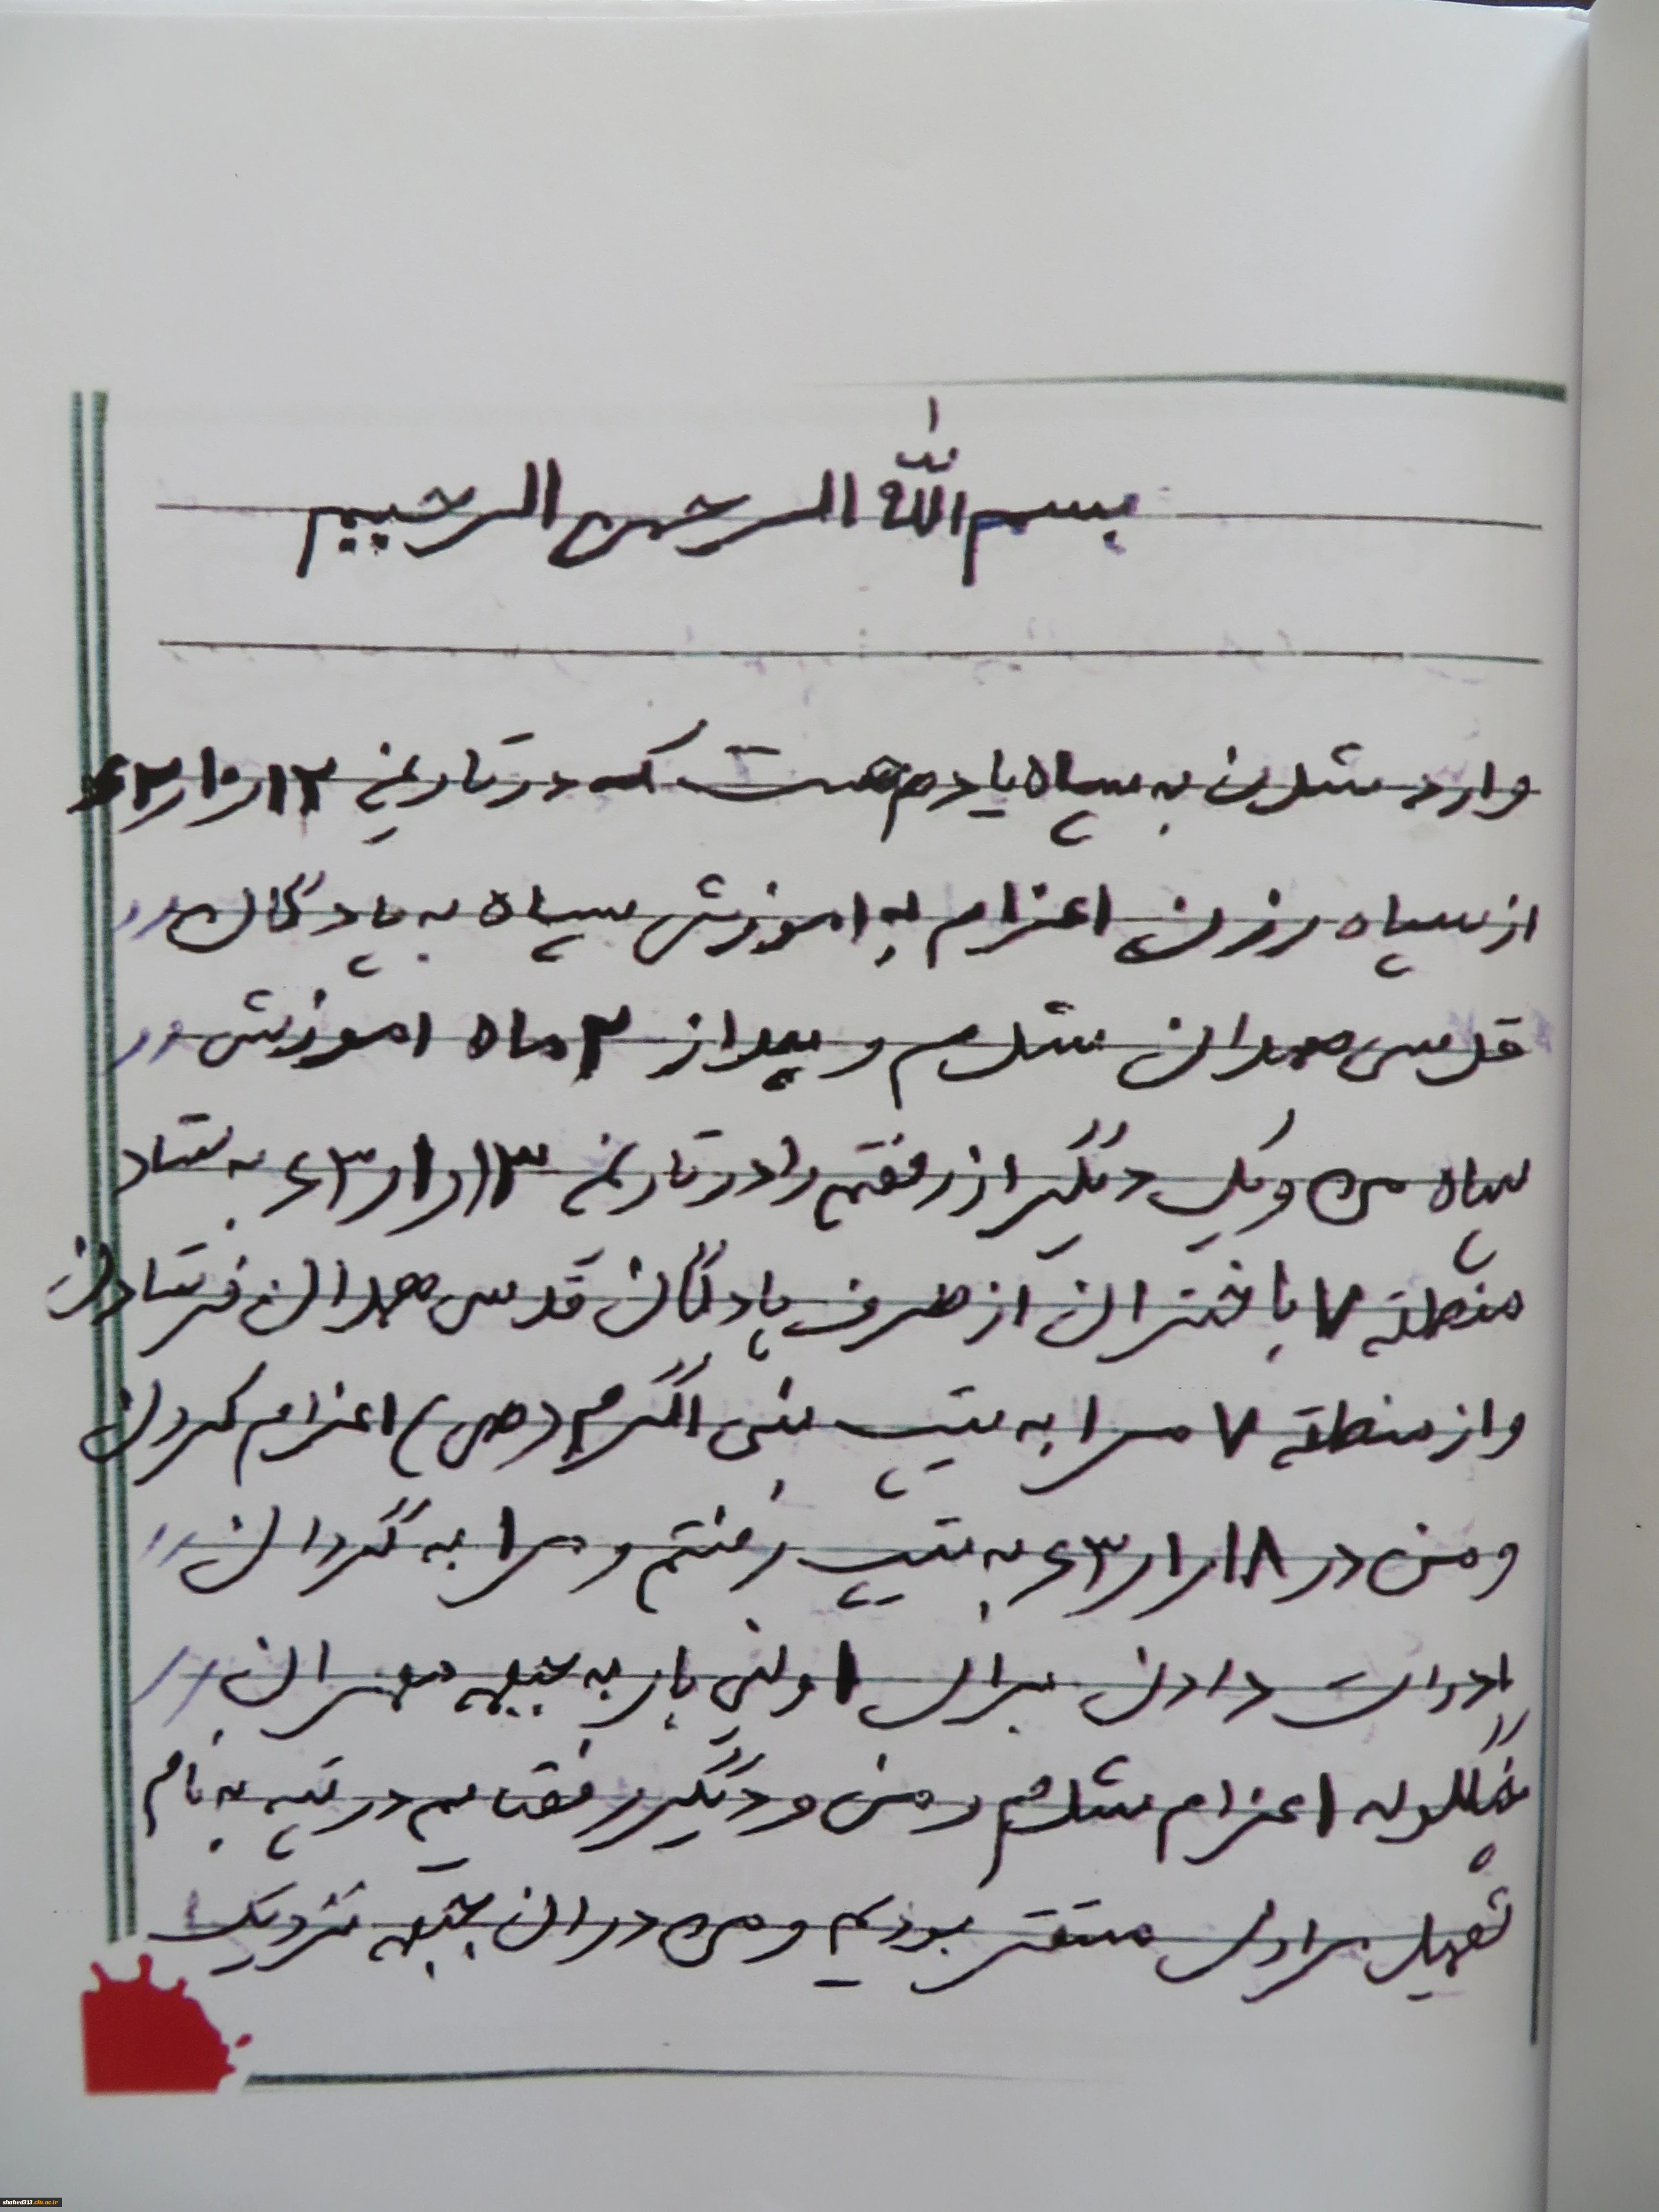 بسم الله الرحمن الرحیم
وارد شدن به سپاه یادم هست که در تاریخ ۶۲/۱۰/۱۲
از سپاه رزن اعزام به اموزش سپاه به پادگان
قدس همدان شدم و بعد از ۳ ماه اموزش در
سپاه من و یک دیگر از رفقیم را در تاریخ ۶۳/۱/۱۳ به ستاد
منطقه ۷ باختران از طرف پادگان قدس همدان فرستادن
و از منطقه ۷ مرا به تیپ نبی اکرم (ص) اعزام کردن
و من در ۶۳/۱/۱۸ به تیپ رفتم و مرا به گردان
ادوات دادن برای اولین بار به جبهه مهران
اعزام شدم و من و دیگر رفقایم در تپه به نام
مستقر بودیم و من در ان جبهه نزدیک
shahed313.cfu.ac.ir